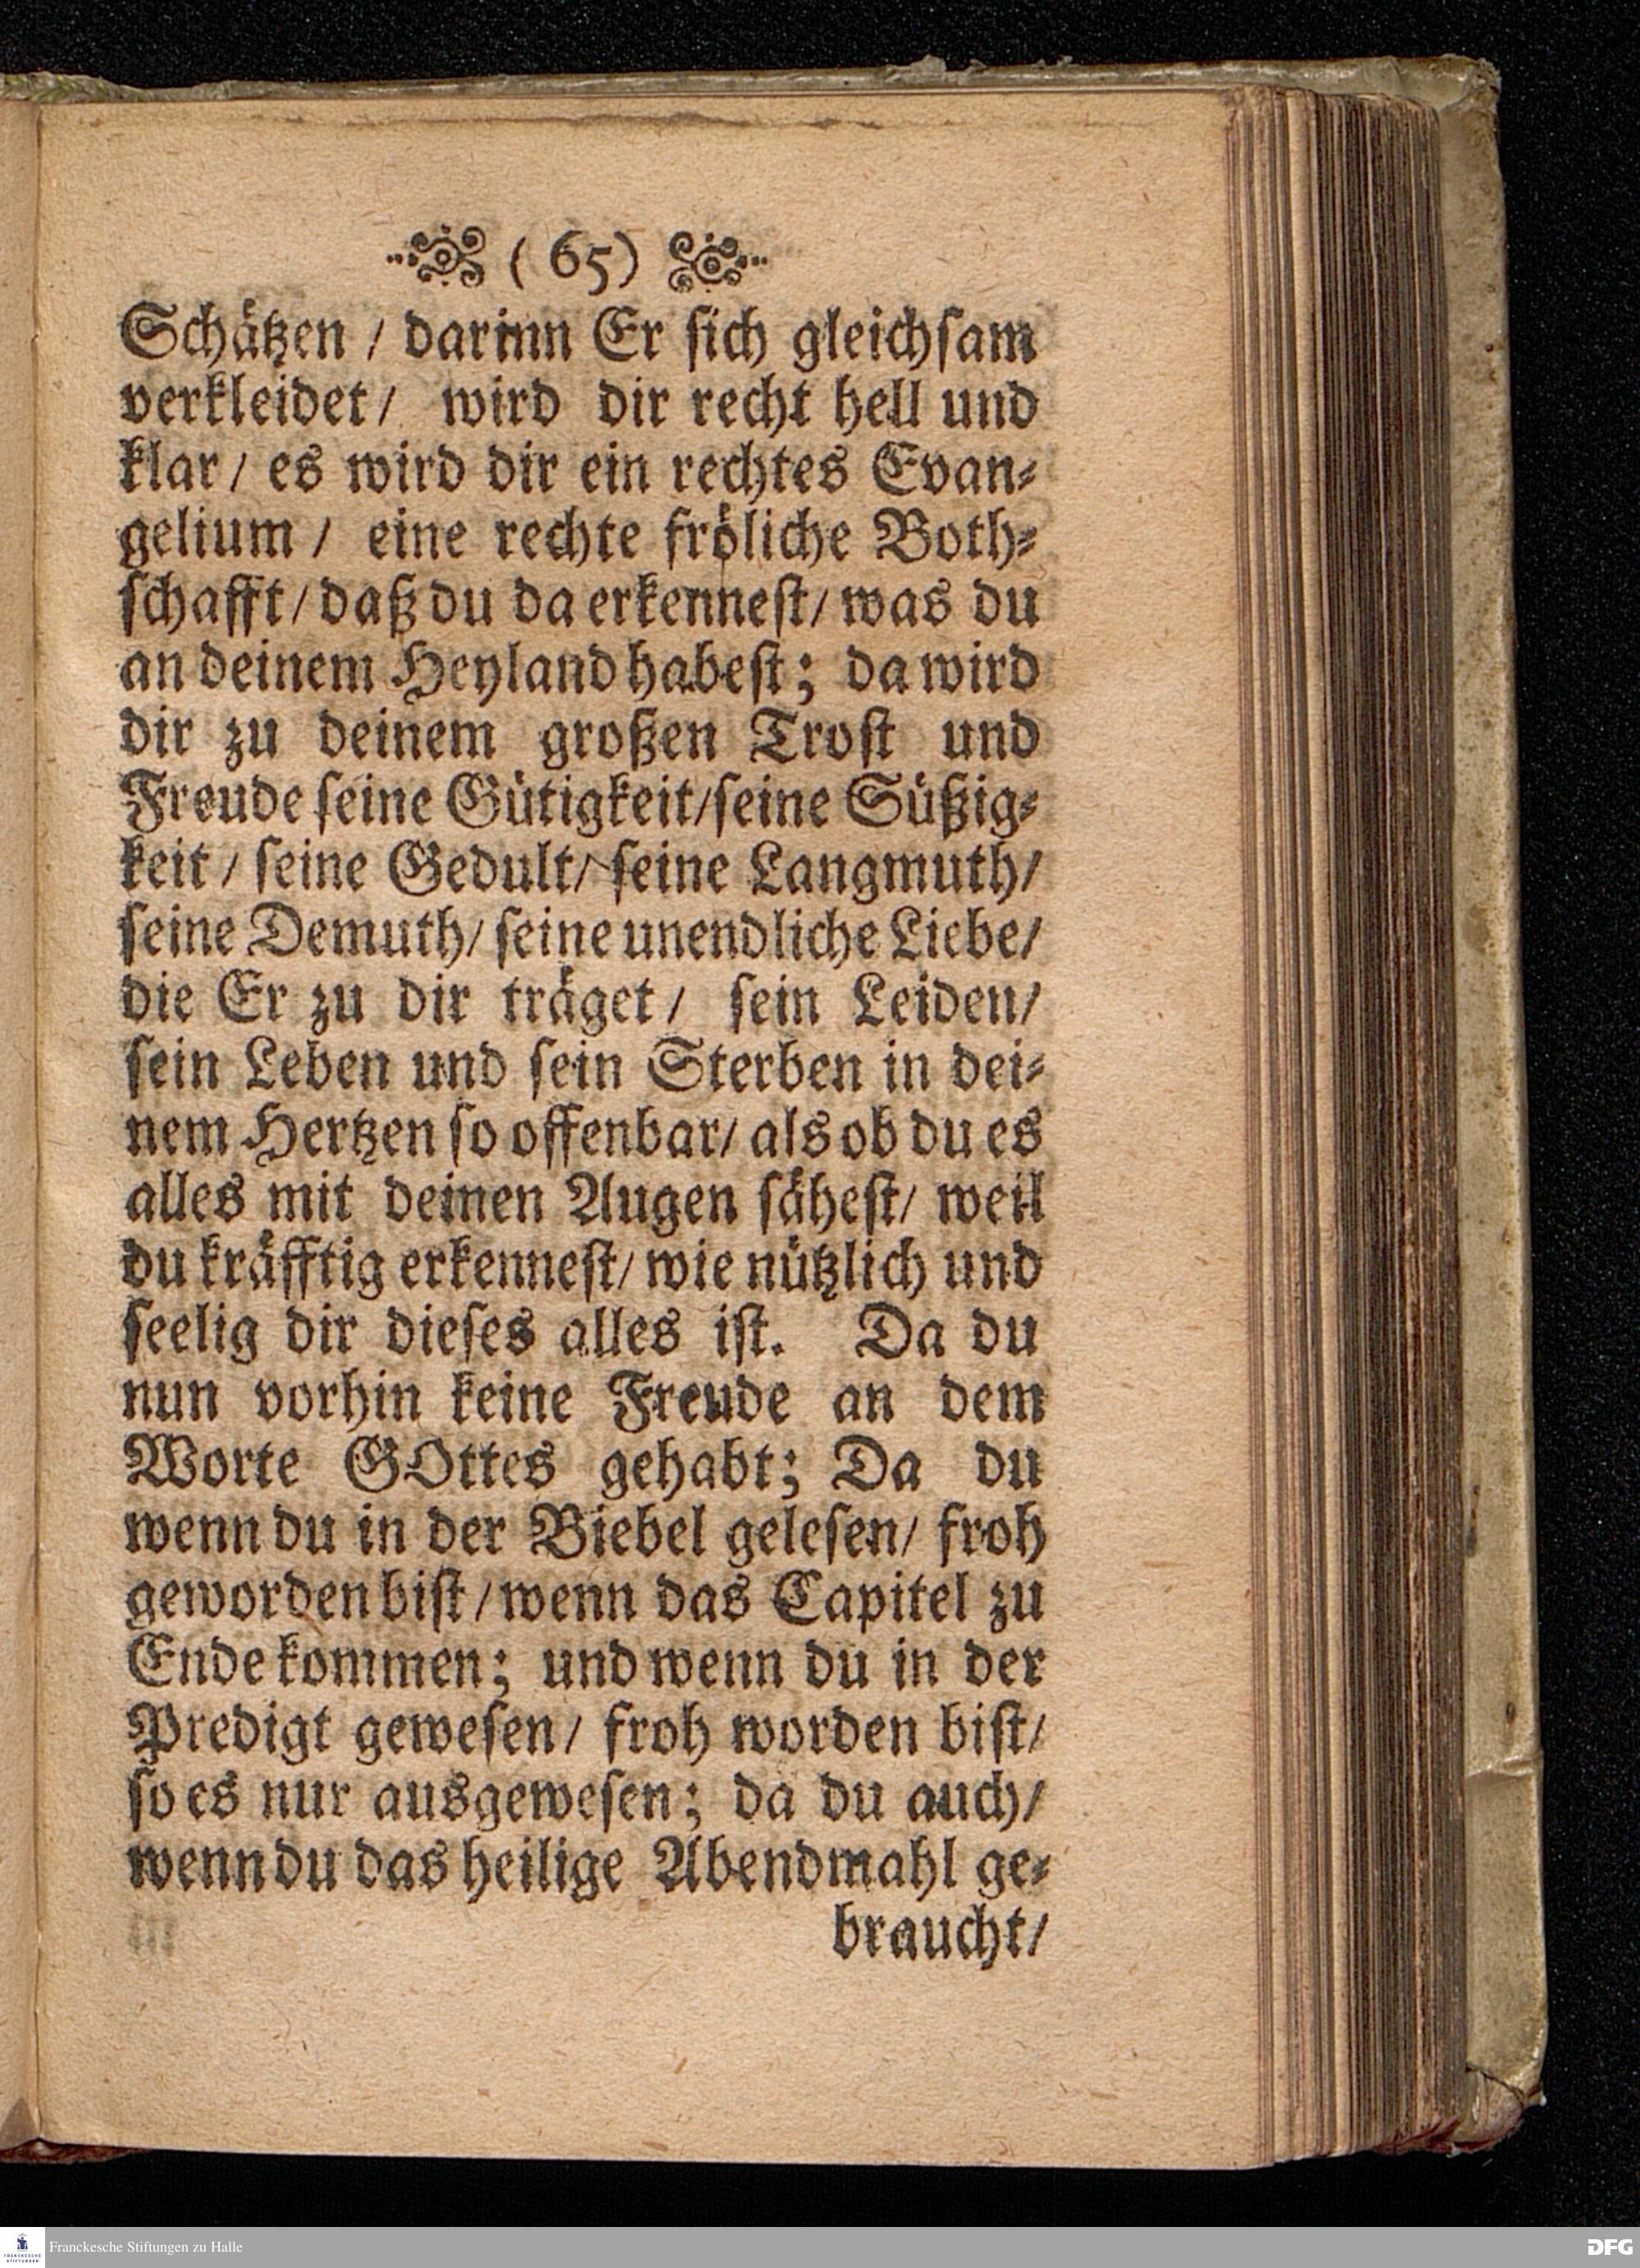 ( 65 )
Schätzen / darinn Er sich gleichsam
verkleidet / wird dir recht hell und
klar / es wird dir ein rechtes Evan-
gelium / eine rechte fröliche Both-
schafft / daß du da erkennest / was du
an deinem Heyland habest; da wird
dir zu deinem großen Trost und
Freude seine Gütigkeit / seine Süßig-
keit / seine Gedult / seine Langmuth /
seine Demuth / seine unendliche Liebe /
die Er zu dir träget / sein Leiden /
sein Leben und sein Sterben in dei-
nem Hertzen so offenbar / als ob du es
alles mit deinen Augen sähest / weil
du kräfftig erkennest / wie nützlich und
seelig dir dieses alles ist. Da du
nun vorhin keine Freude an dem
Worte GOttes gehabt; Da du
wenn du in der Biebel gelesen / froh
geworden bist / wenn das Capitel zu
Ende kommen; und wenn du in der
Predigt gewesen / froh worden bist /
so es nur ausgewesen; da du auch /
wenn du das heilige Abendmahl ge-
braucht /
FRANCKESCHE STIFTUNGEN
Franckesche Stiftungen zu Halle
DFG